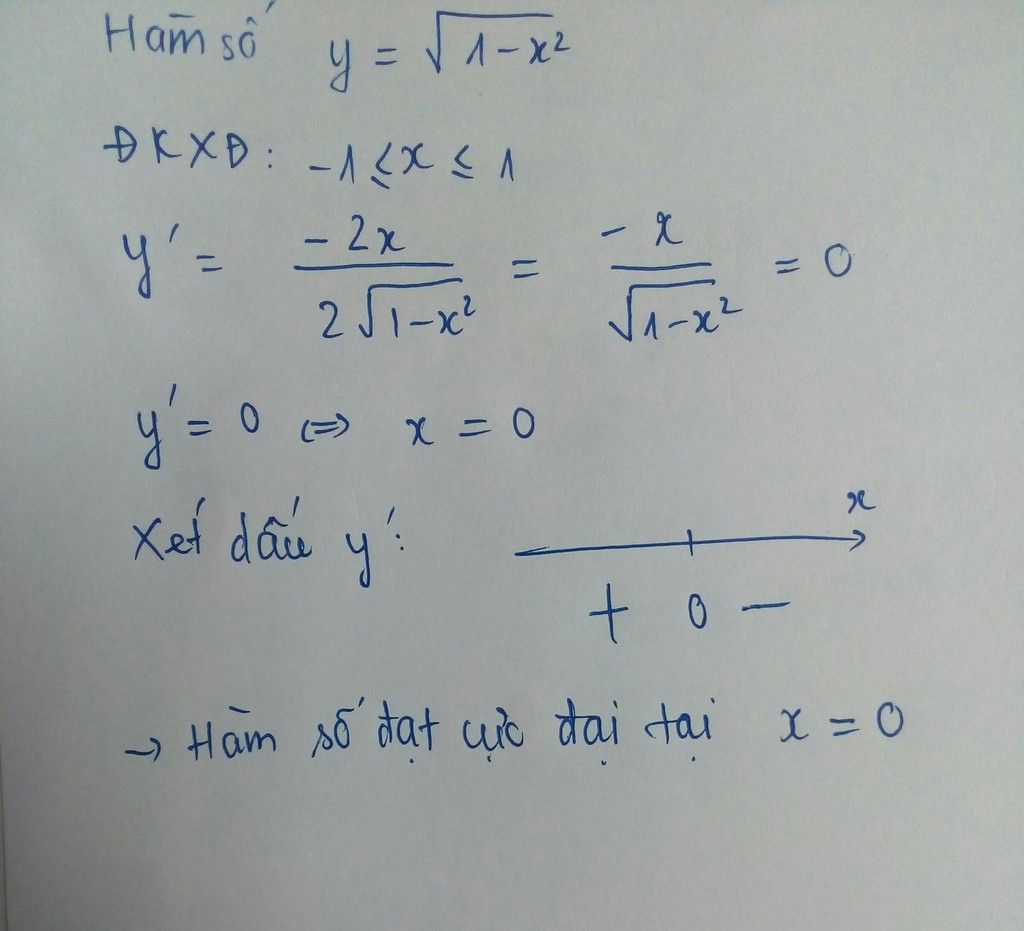 Hàm số y = √1-x²
ĐKXĐ: -1 ≤ x ≤ 1
y' = -2x / 2√1-x² = -x / √1-x² = 0
y' = 0 ⇔ x = 0
Xét dấu y': x
+ 0 -
→ Hàm số đạt cực đại tại x = 0